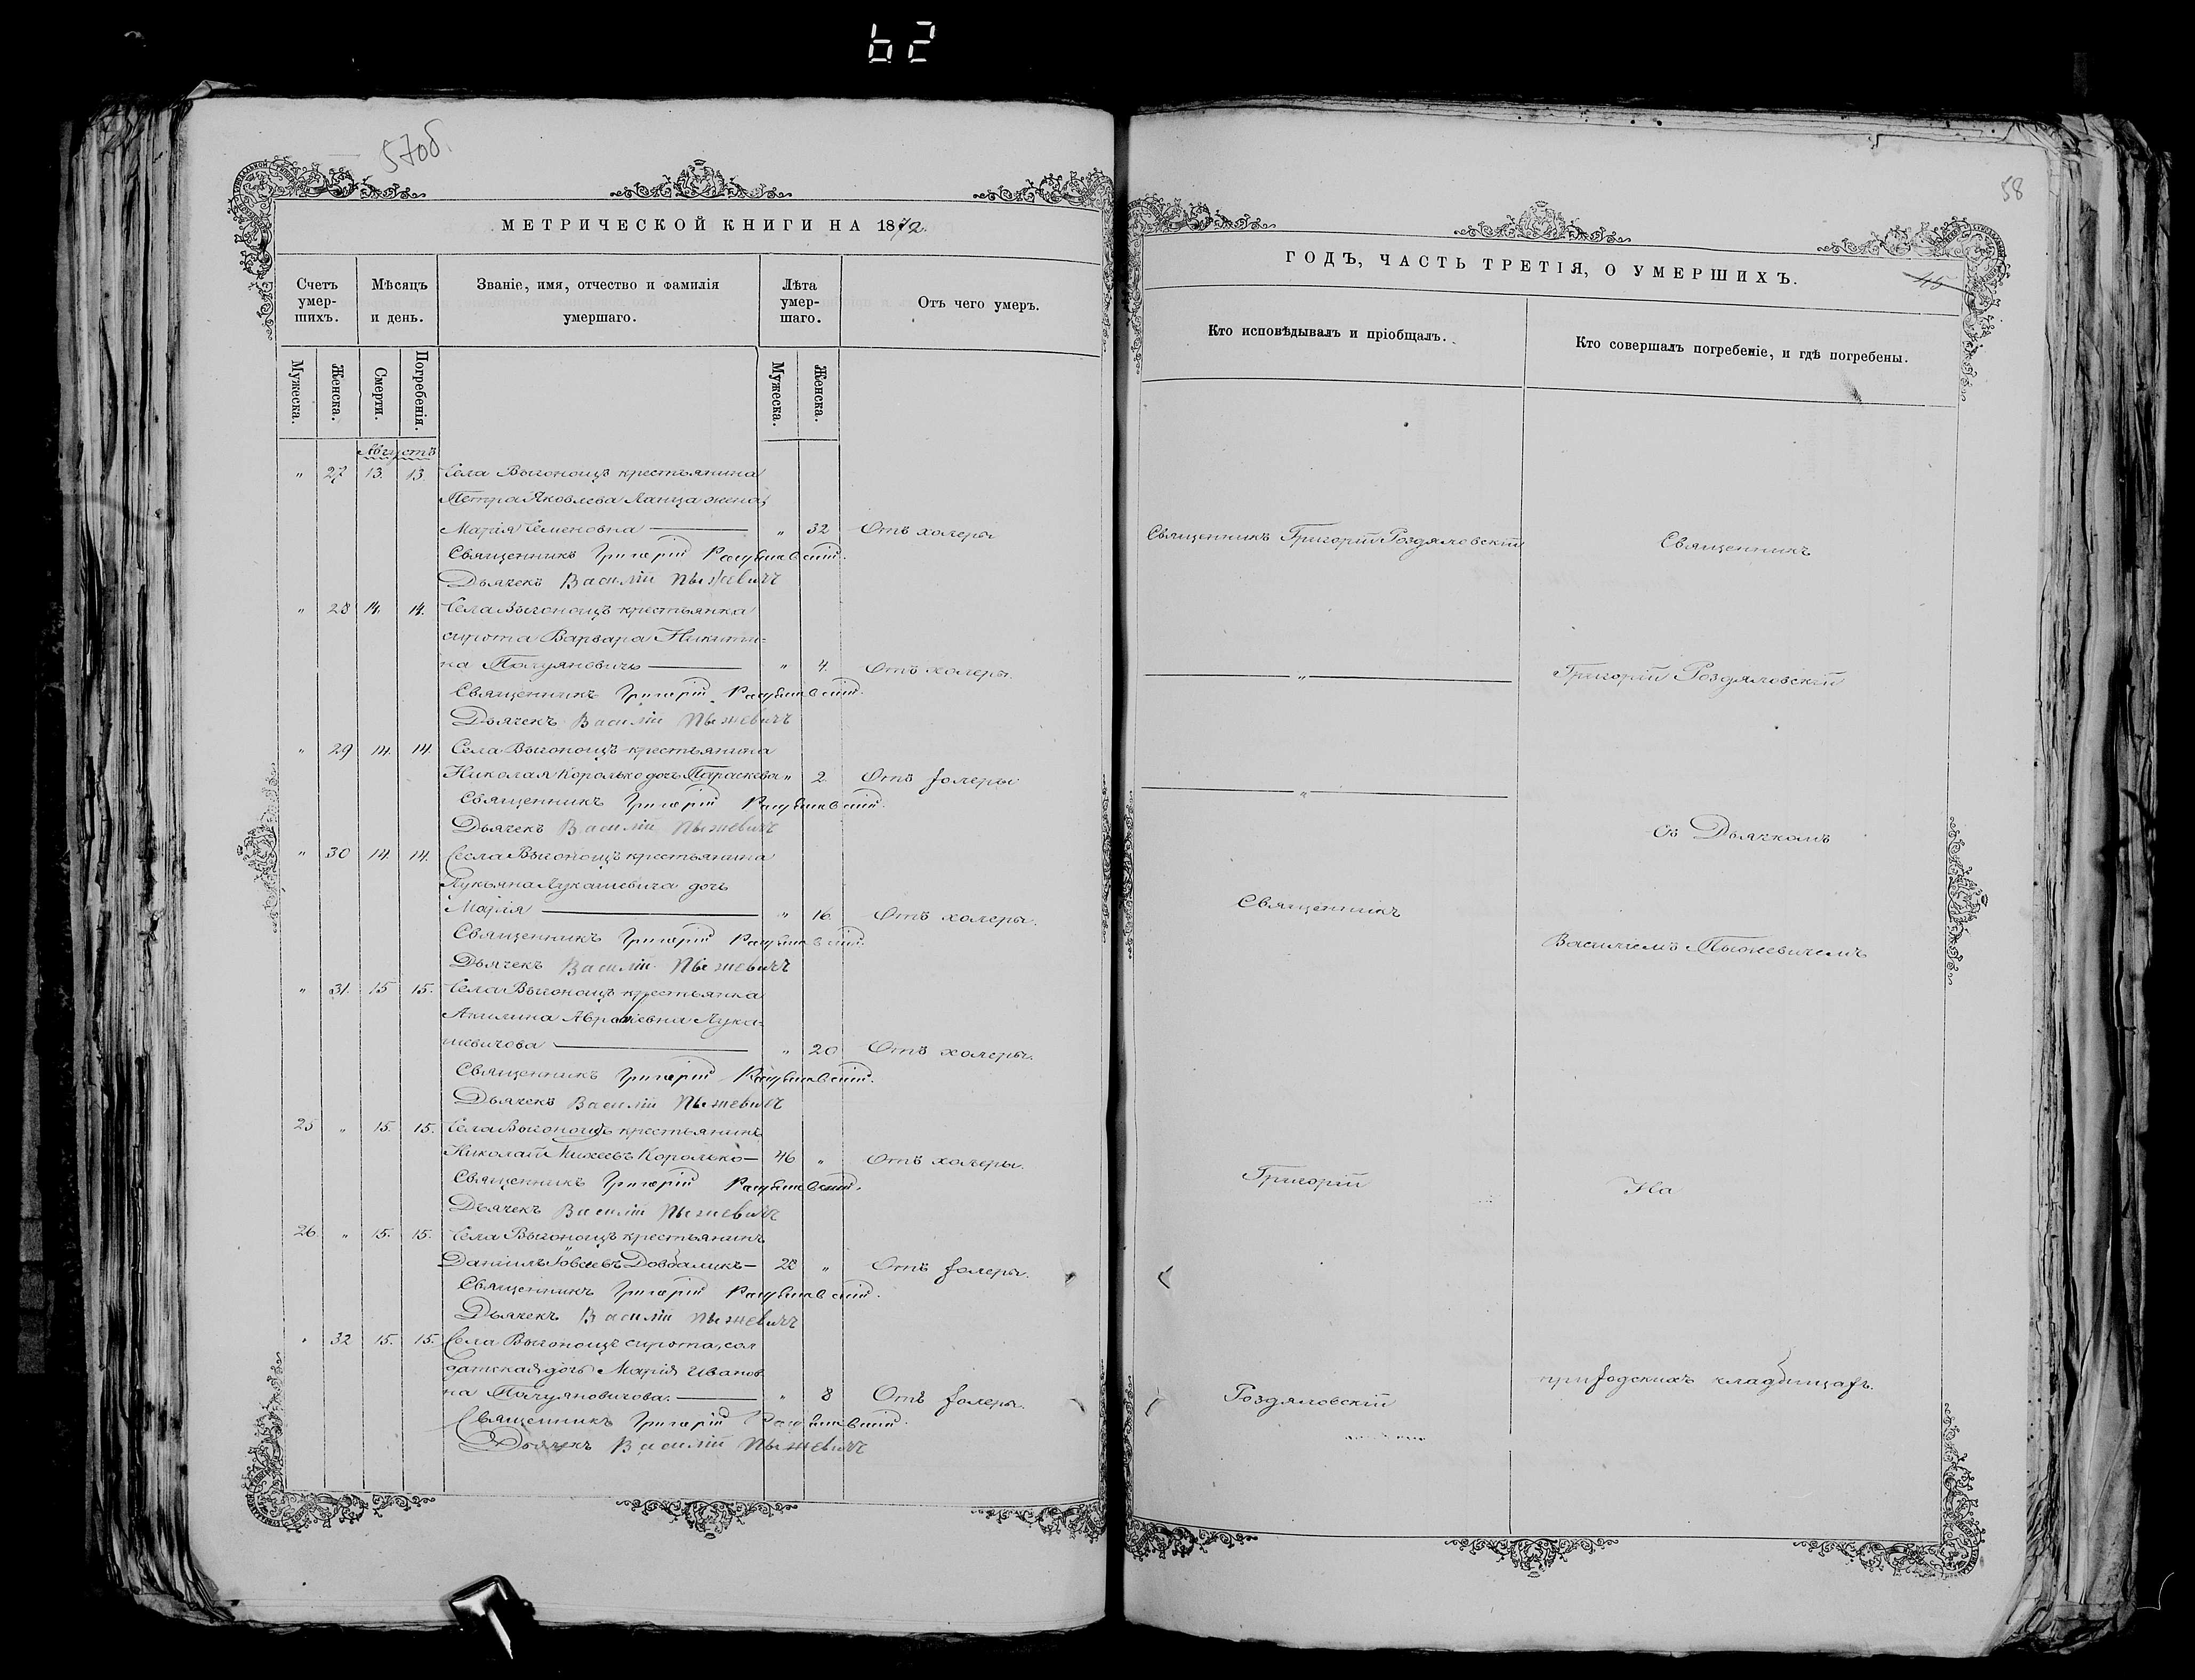 62
57об.
МЕТРИЧЕСКОЙ КНИГИ НА 1872
Счетъ умер-шихъ.
Мѣсяцъ и день.
Званіе, имя, отчество и фамилія умершаго.
Лѣта умер-шаго.
Отъ чего умеръ.
Мужеска.
Женска.
Смерти.
Погребенія.
Мужеска.
Женска.
Августъ
" 27 13. 13. Села Выгонощъ крестьянина
Петра Яковлева Ланца жена,
Марія Семеновна " 32 Отъ холеры
Священникъ Григорій Роздяловскій.
Дьячекъ Василій Пыжевичъ
" 28 14. 14. Села Выгонощъ крестьянка
сирота Варвара Никити-
на Полуяновичъ " 4. Отъ холеры.
Священникъ Григорій Роздяловскій.
Дьячекъ Василій Пыжевичъ
" 29 14. 14. Села Выгонощъ крестьянина
Николая Королько дочь Параскева " 2 Отъ холеры
Священникъ Григорій Роздяловскій.
Дьячекъ Василій Пыжевичъ
" 30 14. 14. Села Выгонощъ крестьянина
Лукьяна Лукашевича дочь
Марія " 16 Отъ холеры.
Священникъ Григорій Роздяловскій.
Дьячекъ Василій Пыжевичъ
" 31. 15 15. Села Выгонощъ крестьянка
Акилина Лука-
шевичова " 20 Отъ холеры.
Священникъ Григорій Роздяловскій.
Дьячекъ Василій Пыжевичъ
25 " 15. 15. Села Выгонощъ крестьянинъ
Николай Михеевъ Королько 46 " Отъ холеры.
Священникъ Григорій Роздяловскій.
Дьячекъ Василій Пыжевичъ
26 " 15. 15. Села Выгонощъ крестьянинъ
Даніилъ Іовсевъ Довбаликъ 28 " Отъ холеры.
Священникъ Григорій Роздяловскій.
Дьячекъ Василій Пыжевичъ
" 32 15. 15. Села Выгонощъ сирота, сол
датская дочь Марія Иванов
на Полуяновичова. " 8 Отъ холеры.
Священникъ Григорій Роздяловскій.
Дьячекъ Василій Пыжевичъ
58
ГОДЪ, ЧАСТЬ ТРЕТІЯ, О УМЕРШИХЪ.
Кто исповѣдывалъ и пріобщалъ.
Кто совершалъ погребеніе, и гдѣ погребены.
Священникъ Григорій Роздяловскій
"
"
Священникъ
Григорій
Роздяловскій
Священникъ
Григорій Роздяловскій
съ Дьячкомъ
Василіемъ Пыжевичемъ
На
приходскихъ кладбищахъ.